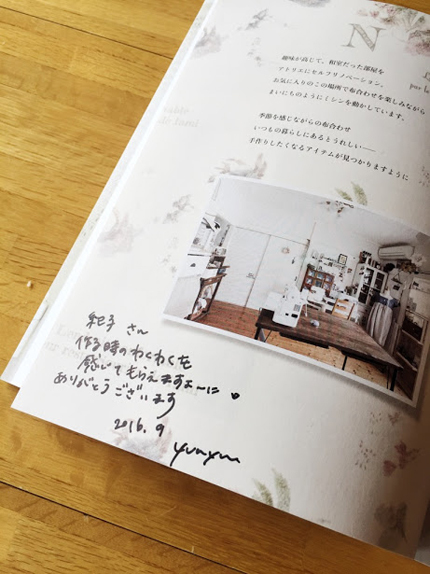 N
趣味が高じて、和室だった部屋を
アトリエにセルフリノベーション。
お気に入りのこの場所で布合わせを楽しみながら
まいにちのようにミシンを動かしています。
季節を感じながらの布合わせ
いつもの暮らしにあるとうれしい──
手作りしたくなるアイテムが見つかりますように
紀子 さん
作る時のわくわくを
感じてもらえますよーに。
ありがとうございます
2016.9
yunyun